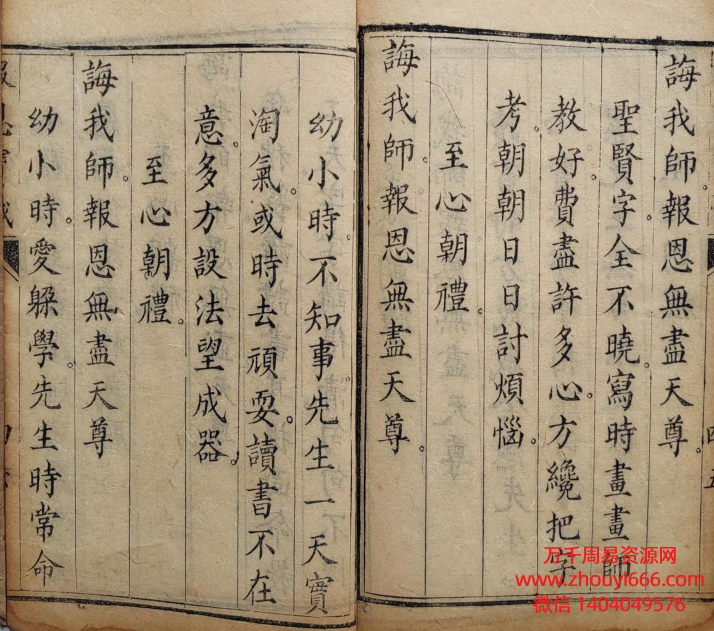 誨我師。報恩無盡天尊。
聖賢字全不曉。寫時畫畫師
教好。費盡許多心。方纔把字
考。朝朝日日討煩惱。
至心朝禮。
誨我師。報恩無盡天尊。
幼小時不知事。先生一天實
淘氣。或時去頑耍。讀書不在
意。多方設法望成器。
至心朝禮。
誨我師。報恩無盡天尊
幼小時。愛躲學。先生時常命
万千周易资源网
www.zhouyi666.com
微信 1404049576